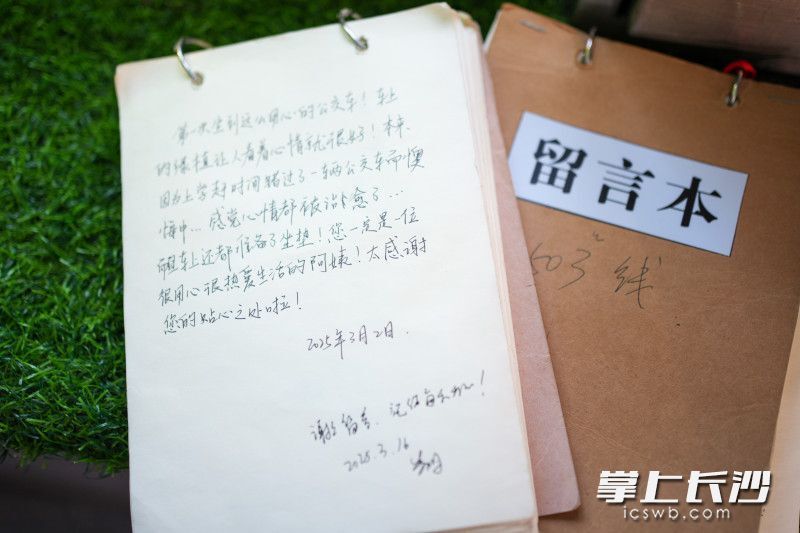 第一次坐到这么用心的公交车！车上
的绿植让人看着心情就很好！本来
因为上学赶时间错过了一辆公交车而懊
悔中…感觉心情都被治愈了…
而且车上还都准备了坐垫！您一定是一位
很用心很热爱生活的阿姨！太感谢
您的贴心之处啦！
2025年3月2日.
谢谢留言.
2025.3.16
留言本
503 线
掌上长沙
icswb.com